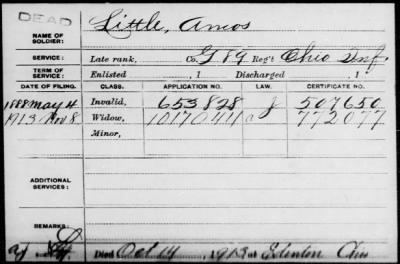 DEAD
Little, Amos
NAME OF
SOLDIER:
SERVICE: Late rank, Co. G 89 Reg't Ohio Inf.
TERM OF
SERVICE: Enlisted , 1 Discharged , 1
DATE OF FILING. CLASS. APPLICATION NO. LAW. CERTIFICATE NO.
1888 May 4 Invalid, 653828 J 507650
1913 Nov 8 Widow, 1017044 a 772077
Minor,
ADDITIONAL
SERVICES:
REMARKS:
Died Oct 14, 1913 at Edenton Ohio